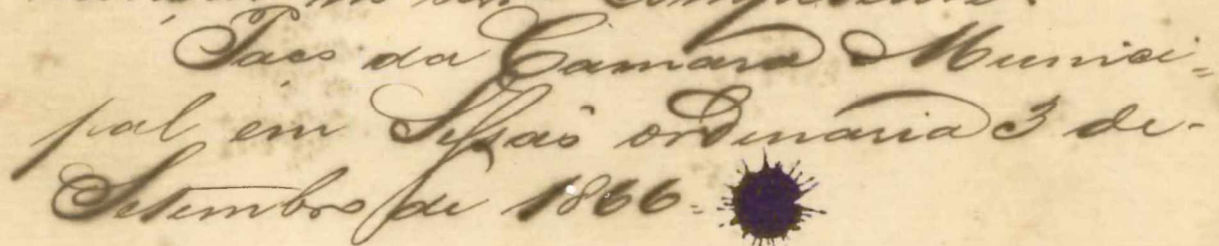 Paço da Camara Munici=
pal em Sessaõ ordinaria 3 de
Setembro de 1866.